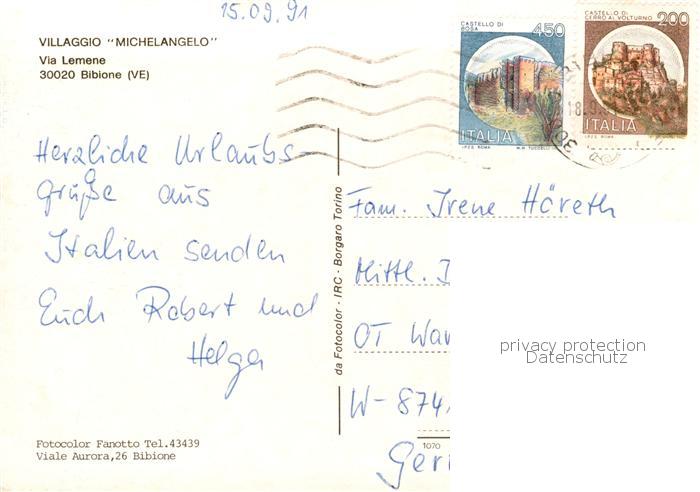 15.09.91
VILLAGGIO "MICHELANGELO"
Via Lemene
30020 Bibione (VE)
CASTELLO DI
ROSA
450
ITALIA
I.P.Z.S. ROMA
CASTELLO DI
CERRO AL VOLTURNO
200
ITALIA
I.P.Z.S. ROMA
Herzliche Urlaubs-
grüße aus
Italien senden
Euch Robert und
Helga
da Fotocolor - IRC - Borgaro Torino
Fam. Irene Höreth
Mittl.
OT
W-874
1070
privacy protection
Datenschutz
Fotocolor Fanotto Tel.43439
Viale Aurora,26 Bibione